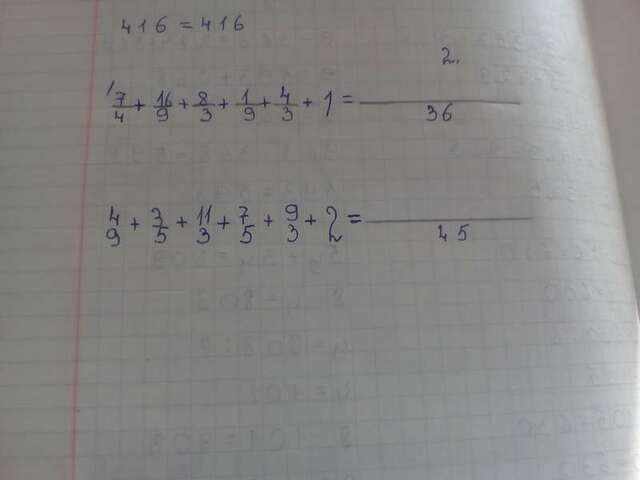 416 = 416
2.
7/4 + 16/9 + 8/3 + 1/9 + 4/3 + 1 = /36
4/9 + 3/5 + 11/3 + 7/5 + 9/3 + 2 = /45